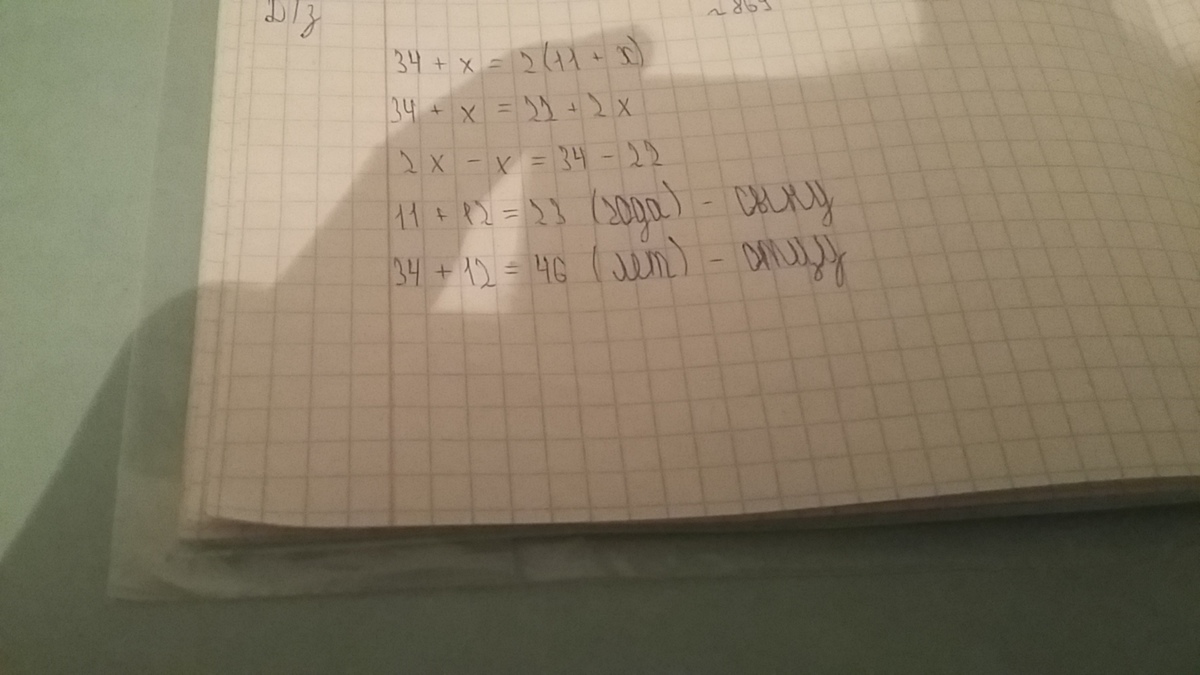 Д/З
34 + x = 2(11 + x)
34 + x = 22 + 2x
2x - x = 34 - 22
11 + 12 = 23 (года) - сыну
34 + 12 = 46 (лет) - отцу